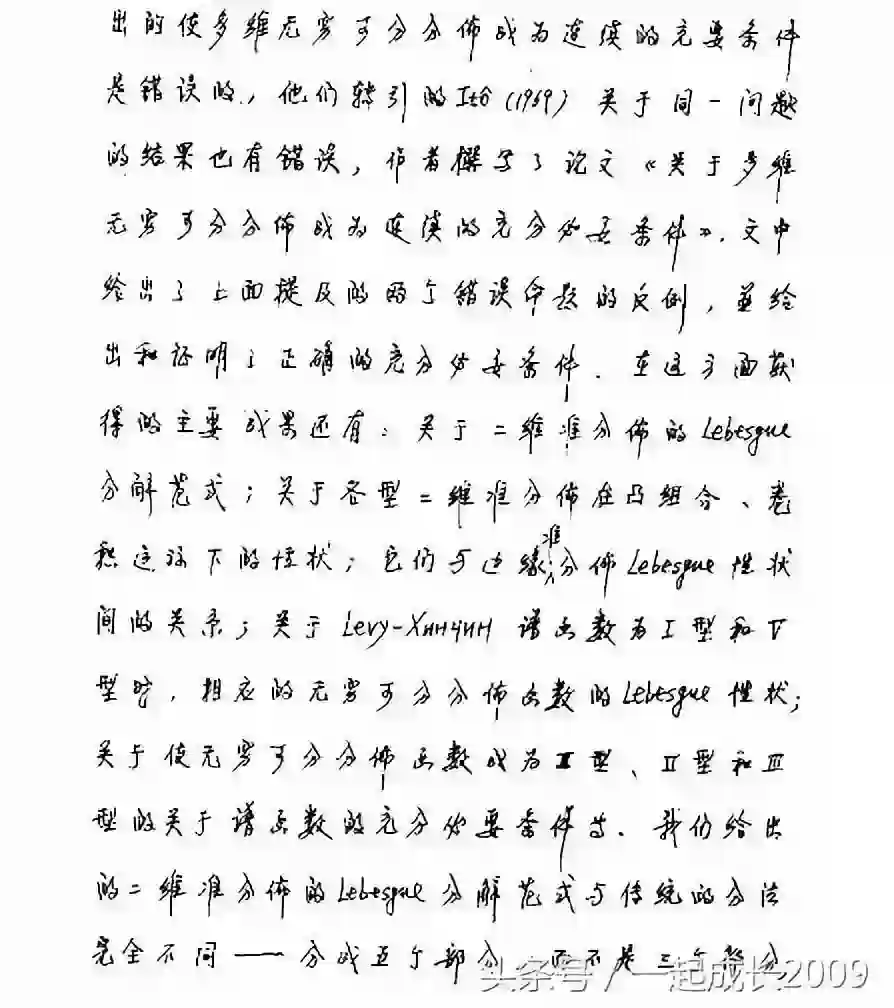 出的使多维无穷可分分佈成为连续的充要条件
是错误的,他们转引的Itô(1969)关于同一问题
的结果也有错误,作者撰写了论文《关于多维
无穷可分分佈成为连续的充分必要条件》.文中
给出了上面提及的两个错误命题的反例,並给
出和证明了正确的充分必要条件.在这方面获
得的主要成果还有:关于二维准分佈的Lebesgue
分解范式;关于各型二维准分佈在凸组合、卷
积运算下的性状;它们与边缘准分佈Lebesgue性状
间的关系;关于Levy-Хинчин谱函数为I型和V
型时,相应的无穷可分分佈函数的Lebesgue性状;
关于使无穷可分分佈函数成为I型、II型和III
型的关于谱函数的充分必要条件等.我们给出
的二维准分佈的Lebesgue分解范式与传统的分法
完全不同——分成五个部分,而不是三个部分
头条号/一起成长2009